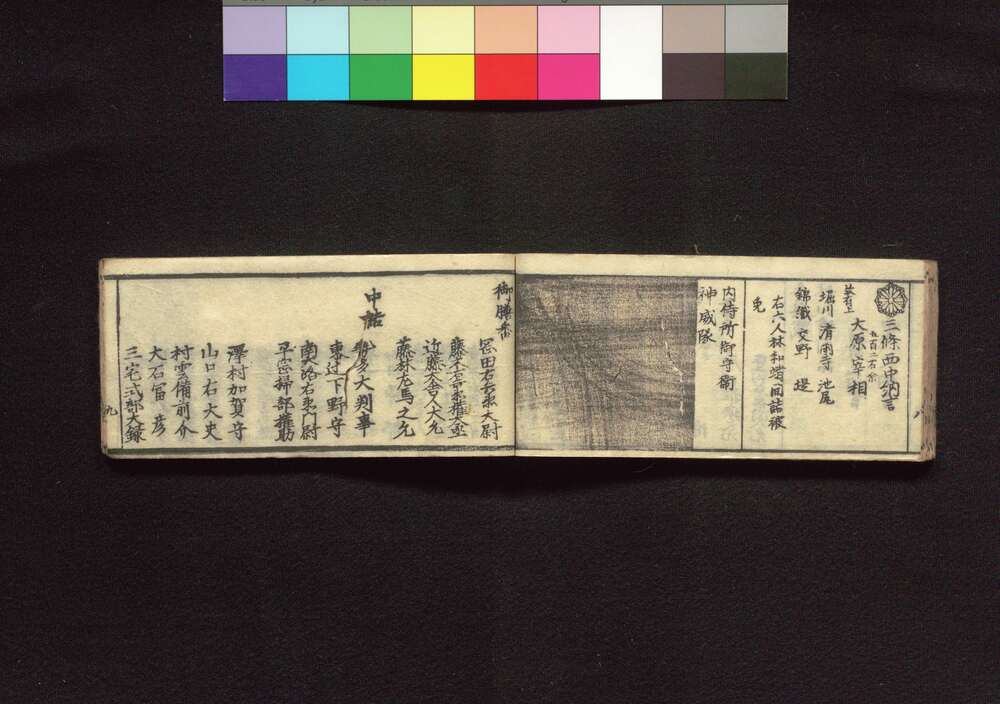 三條西中納言
五百二石余
大原宰相
堀川 清岡寺 池尾
錦織 交野 堤
右六人林和靖間詰被
免
内侍所御守衛
神威隊
八
御膳番
藤木右京権大夫
近藤舎人大允
藤林左馬之允
中詰
勢多大判事
東辻下野守
南大路右衛門尉
平忌掃部権助
澤村加賀守
山口右大史
村雲備前介
大石冨彦
三宅式部大録
九